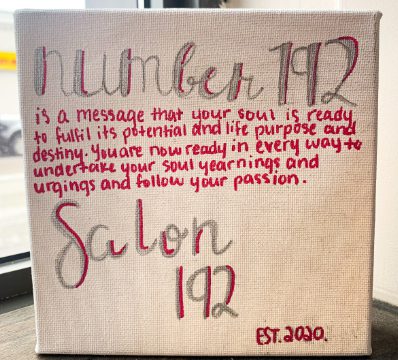 number 192
is a message that your soul is ready
to fulfil its potential and life purpose and
destiny. You are now ready in every way to
undertake your soul yearnings and
urgings and follow your passion.
Salon
192
EST. 2020.